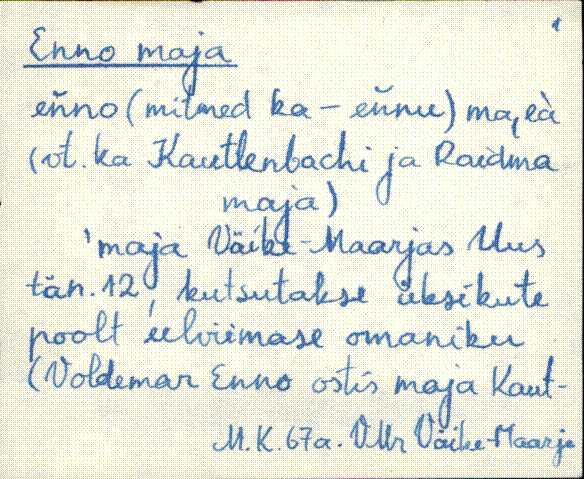 1
Enno maja
eňno (mitmed ka – eňnu) ma,eà
(vt. ka Kautlenbachi ja Raidma
maja)
'maja Väike-Maarjas Uus
tän. 12, kutsutakse üksikute
poolt eelviimase omaniku
(Voldemar Enno ostis maja Kaut-
M.K. 67a. VMr Väike-Maarja